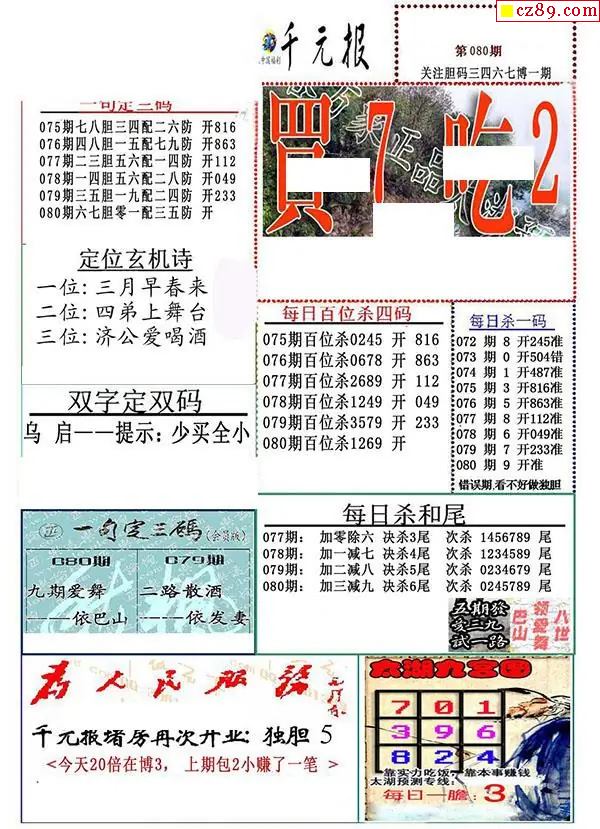 cz89.com
千元报
第080期
关注胆码三四六七博一期
一句定三码
075期七八胆三四配二六防 开816
076期四八胆一五配七九防 开863
077期二三胆五六配一四防 开112
078期一四胆五六配二八防 开049
079期三五胆一九配二四防 开233
080期六七胆零一配三五防 开
買7吃2
定位玄机诗
一位: 三月早春来
二位: 四弟上舞台
三位: 济公爱喝酒
双字定双码
乌 启——提示: 少买全小
每日百位杀四码
075期百位杀0245 开 816
076期百位杀0678 开 863
077期百位杀2689 开 112
078期百位杀1249 开 049
079期百位杀3579 开 233
080期百位杀1269 开
每日杀一码
072 期 8 开245准
073 期 0 开504错
074 期 1 开487准
075 期 3 开816准
076 期 5 开863准
077 期 8 开112准
078 期 6 开049准
079 期 7 开233准
080 期 9 开准
错误期,看不好做独胆
一句定三碼(会员版)
080期
079期
九期爱舞
——依巴山
二路散酒
——依发妻
每日杀和尾
077期: 加零除六 决杀3尾 次杀 1456789 尾
078期: 加一减七 决杀4尾 次杀 1234589 尾
079期: 加二减八 决杀5尾 次杀 0234679 尾
080期: 加三减九 决杀6尾 次杀 0245789 尾
五期發
亥三九
试一路
巴山
领爱舞
八世
為人民服務
千元报堵房再次开业: 独胆 5
<今天20倍在博3, 上期包2小赚了一笔 >
太湖九宫图
7 0 1
3 9 6
8 2 4
靠实力吃饭,靠本事赚钱
太湖预测专线:
每日一胆: 3